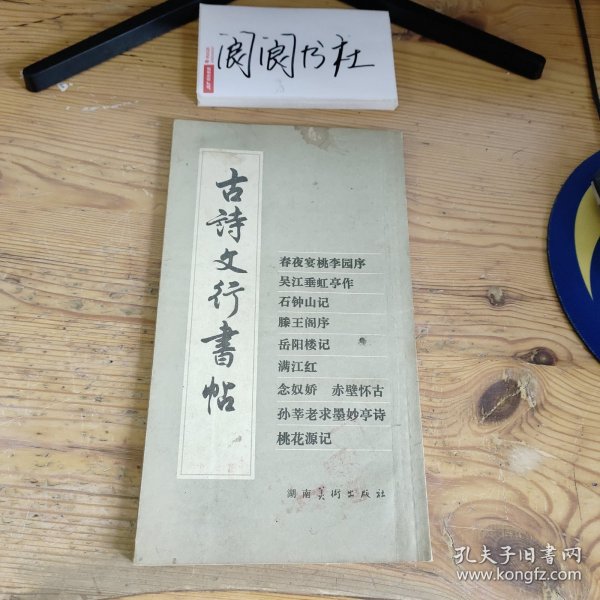 阅阅书社
古詩文行書帖
春夜宴桃李园序
吴江垂虹亭作
石钟山记
滕王阁序
岳阳楼记
满江红
念奴娇 赤壁怀古
孙莘老求墨妙亭诗
桃花源记
湖南美術出版社
孔夫子旧書网
www.kongfz.com